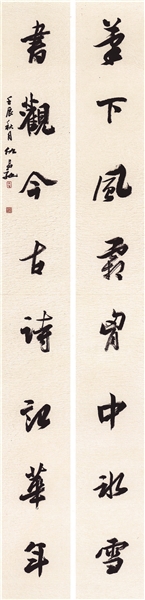 筆下風霜胷中冰雪
書觀今古詩記華年
壬辰秋月